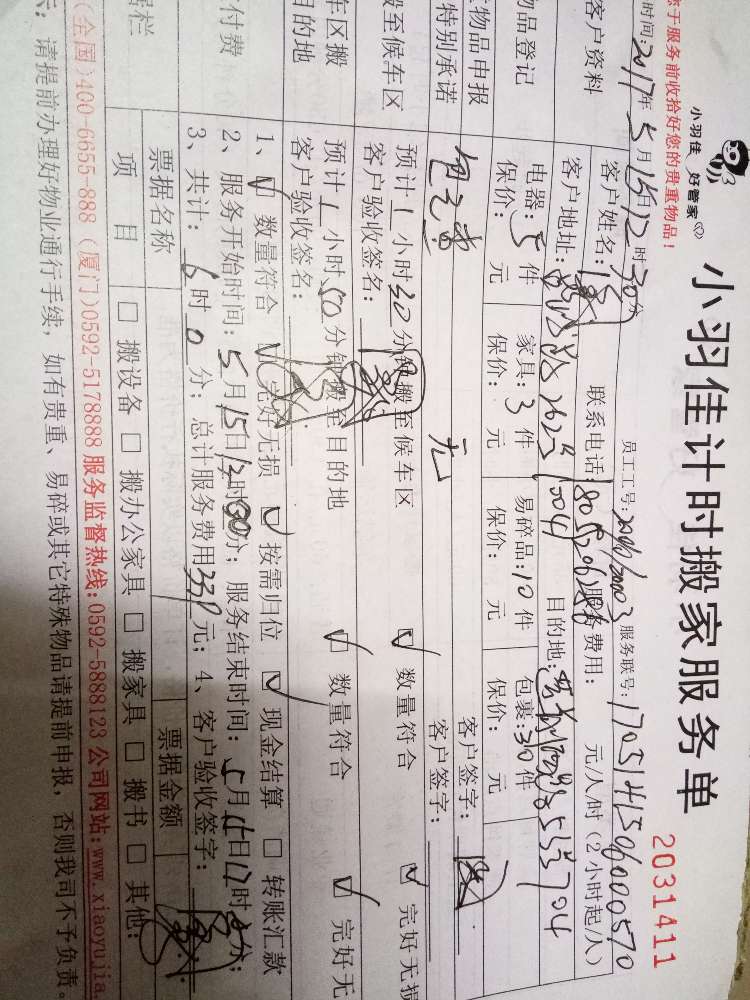 小羽佳 好管家
小羽佳计时搬家服务单
2031411
您于服务前收拾好您的贵重物品!
时间:2017年5月15日12时30分 员工工号: 服务联号:1705141506000570
客户资料
客户姓名: 联系电话: 服务费用: 元/人/时(2小时起/人)
客户地址: 目的地:
物品登记
电器:5件 家具:3件 易碎品:10件 包裹:30件
保价: 元 保价: 元 保价: 元 保价: 元
物品申报 客户签字:
特别承诺 无 客户签字:
搬至候车区
预计1小时30分钟搬至候车区 数量符合 完好无损
客户验收签名:
车区搬
目的地
预计1小时50分钟搬至目的地 数量符合 完好无
客户验收签名:
付费
1、数量符合 完好无损 按需归位 现金结算 转账汇款
2、服务开始时间:5月15日13时30分; 服务结束时间:5月15日17时 分;
3、共计:6时0分; 总计服务费用339元; 4、客户验收签字:
据栏
票据名称 票据金额
项目 搬设备 搬办公家具 搬家具 搬书 其他:
(全国)400-6655-888 (厦门)0592-5178888 服务监督热线:0592-5888123 公司网站:www.xiaoyujia.
示: 请提前办理好物业通行手续,如有贵重、易碎或其它特殊物品请提前申报,否则我司不予负责。